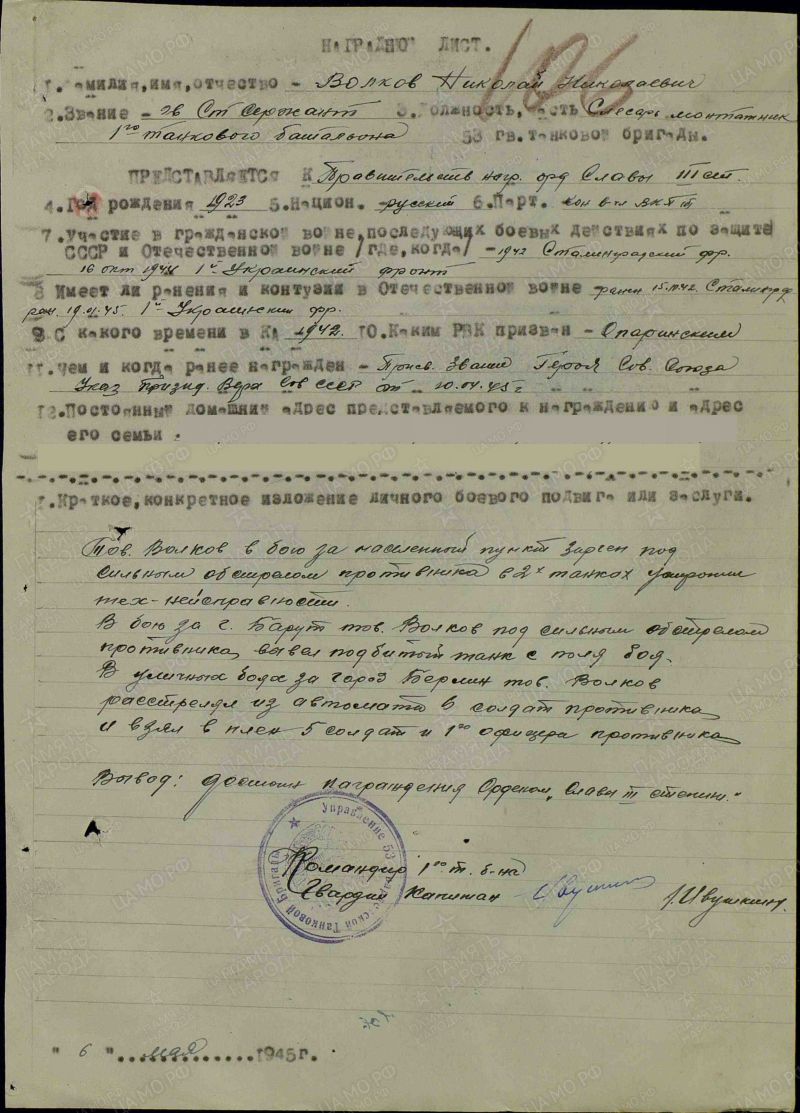 НАГРАДНОЙ ЛИСТ.
126
1. Фамилия, имя, отчество - Волков Николай Николаевич
2. Звание - гв Ст Сержант 3. Должность, часть Слесарь монтажник
1го танкового батальона 53 гв. танковой бригады.
ПРЕДСТАВЛЯЕТСЯ К Правительств нагр. орд Славы III ст.
4. Год рождения 1923 5. Национ. - русский 6. Парт. кон в-л ВКП
7. Участие в гражданской войне, последующих боевых действиях по защите
СССР и Отечественной войне /где, когда/ - 1942 Сталинградский фр.
16 окт 1944 1й Украинский фронт
8 Имеет ли ранения и контузии в Отечественной войне ранен 15.11.42. Сталингр.
ран. 19.01.45. 1й Украинский фр.
9. С какого времени в КА 1942. 10. Каким РВК призван - Опаринским
11. Чем и когда ранее награжден - Присв. Звание Героя Сов. Союза
Указ Призид. Верх Сов СССР от 10.04.45 г
12. Постоянный домашний адрес представляемого к награждению и адрес
его семьи :
1. Краткое, конкретное изложение личного боевого подвига или заслуги.
Тов. Волков в бою за населенный пункт под
сильным обстрелом противника в 2х танках устранил
тех-неисправности.
В бою за г. Барут тов. Волков под сильным обстрелом
противника вывел подбитый танк с поля боя.
В уличных боях за город Берлин тов. Волков
расстрелял из автомата 6 солдат противника
и взял в плен 5 солдат и 1го офицера противника
Вывод: достоин награждения Орденом "Славы III степени."
Управление 53 Танковой Бригады
Командир 1го т. б-на
Гвардии Капитан /Ивушкин/
" 6 " мая 1945г.